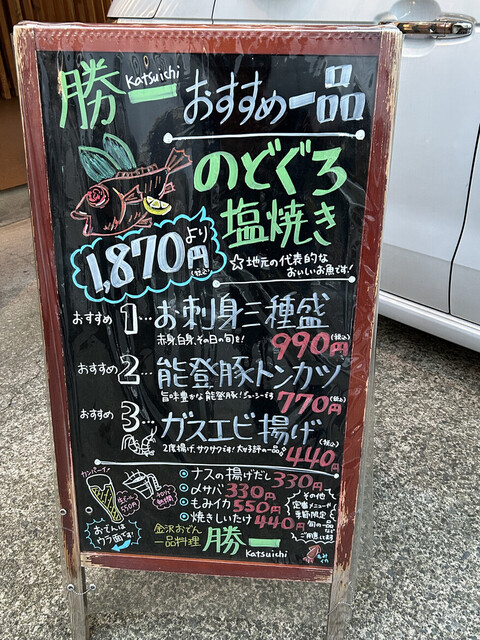 勝一 Katsuichi
おすすめ一品
のどぐろ
塩焼き
1,870円より(税込)
☆地元の代表的な
おいしいお魚です!
おすすめ 1…お刺身三種盛
赤身、白身、その日の旬を!
990円(税込)
おすすめ 2…能登豚トンカツ
旨味豊かな能登豚!ジューシーです
770円(税込)
おすすめ 3…ガスエビ揚げ
2度揚げ、サクサクです!大好評の一品
440円(税込)
カンパーイ!
生ビール
550円
・ナスの揚げだし 330円
・〆サバ 330円
・もみイカ 550円
・焼きしいたけ 440円
その他
定番メニューや
季節限定
旬の一品など
ご用意してます
おでんは
ウラ面です!
金沢おでん
一品料理
勝一
Katsuichi
もみ
イカ